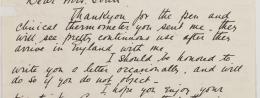 Dear Mrs.
Thankyou for the Pen and
clinical thermometer you sent me, they
will see pretty continuous use after they
arrive in England with me.
I should be honored to
write you a letter occasionally, and will
do so if you do not object.
I hope you enjoy your